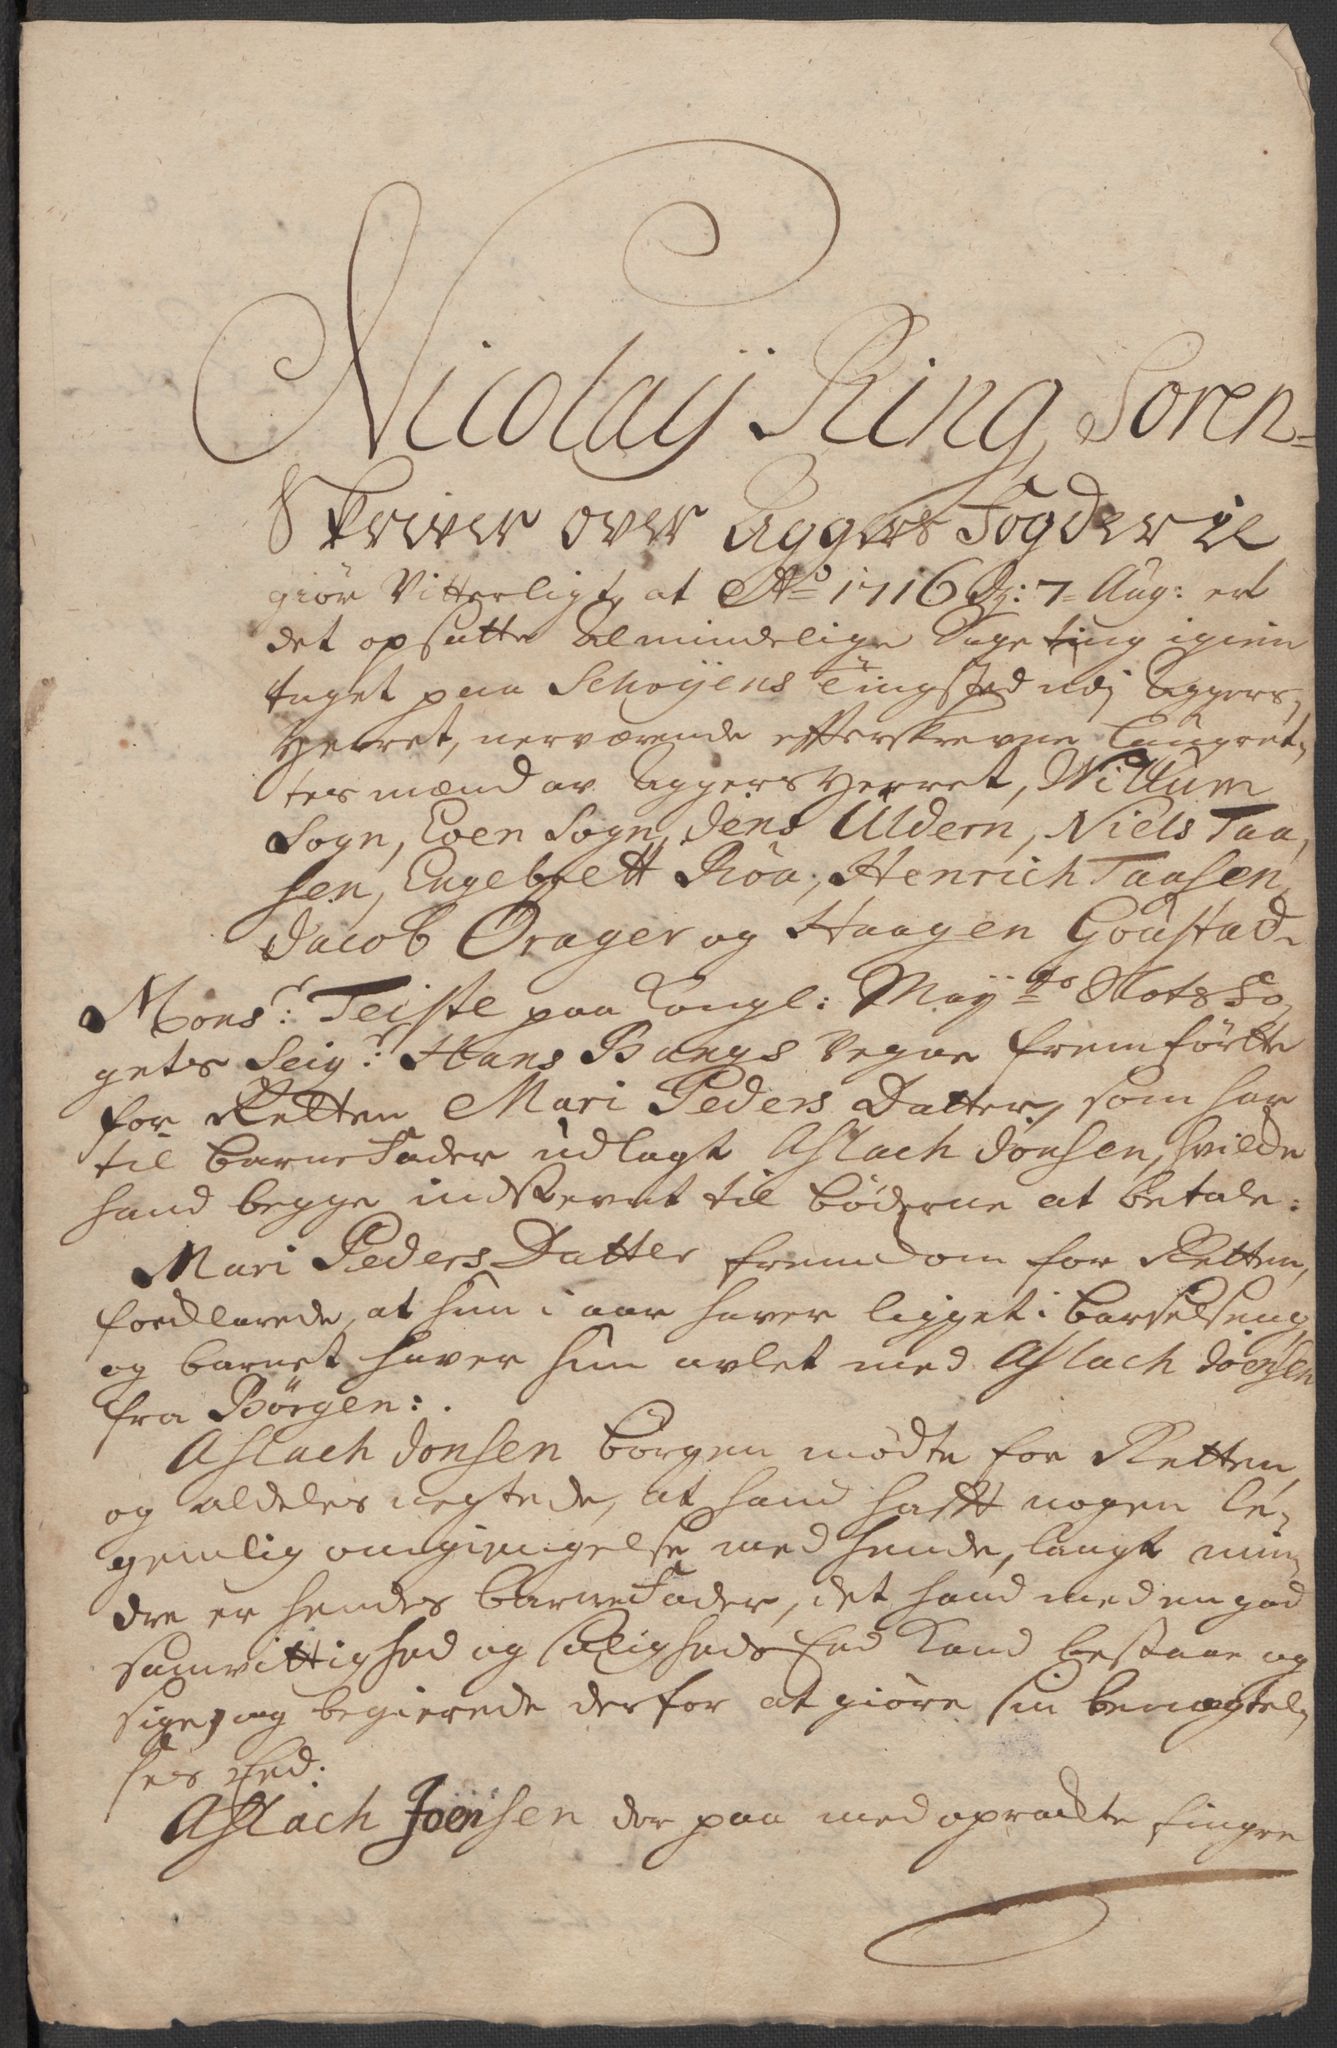 Nicolaÿ Ring, Soren=
Skriver over Aggers Fogderie
giör Vitterligt, at Ao 1716 D: 7 Aug: er
det opsatte Almindelige Sageting igien
taget paa Schoÿens Tingsted udj Aggers,
Herret, nerværende efterskrevne Laugret,
tesmænd av Aggers Herret, Willum
Sogn, Even Sogn, Jens Üldern, Niels Taa,
sen, Engebrett Röa, Henrich Taasen,
Jacob Örager og Haagen Goustad.
Monsr: Teiste paa Kongl: Maÿts Slots Fo,
gets Seigr: Hans Bangs Vegne fremförtte
for Retten Mari Peders Datter, som har
til barneFader udlagt Aslach Jonsen, hvilde
hand begge indstevnt til böderne at betale:
Mari Peders Datter fremkom for Retten,
forklarede, at hun i aar haver ligget i barselseng,
og barnet haver hun avlet med Aslach Joensen
fra Börgen:.
Aslach Jonsen börgen mödte for Retten,
og aldeles negtede, at hand hafft nogen le,
gemlig omgiengelse med hende, langt min,
dre er hendes barneFader, det hand med en god
samvittighed og saligheds Eed kand bestaae og
sige, og begierede derfor at giöre sin benegtel,
ses Eed:
Aslach Joensen der paa med oprakte fingre